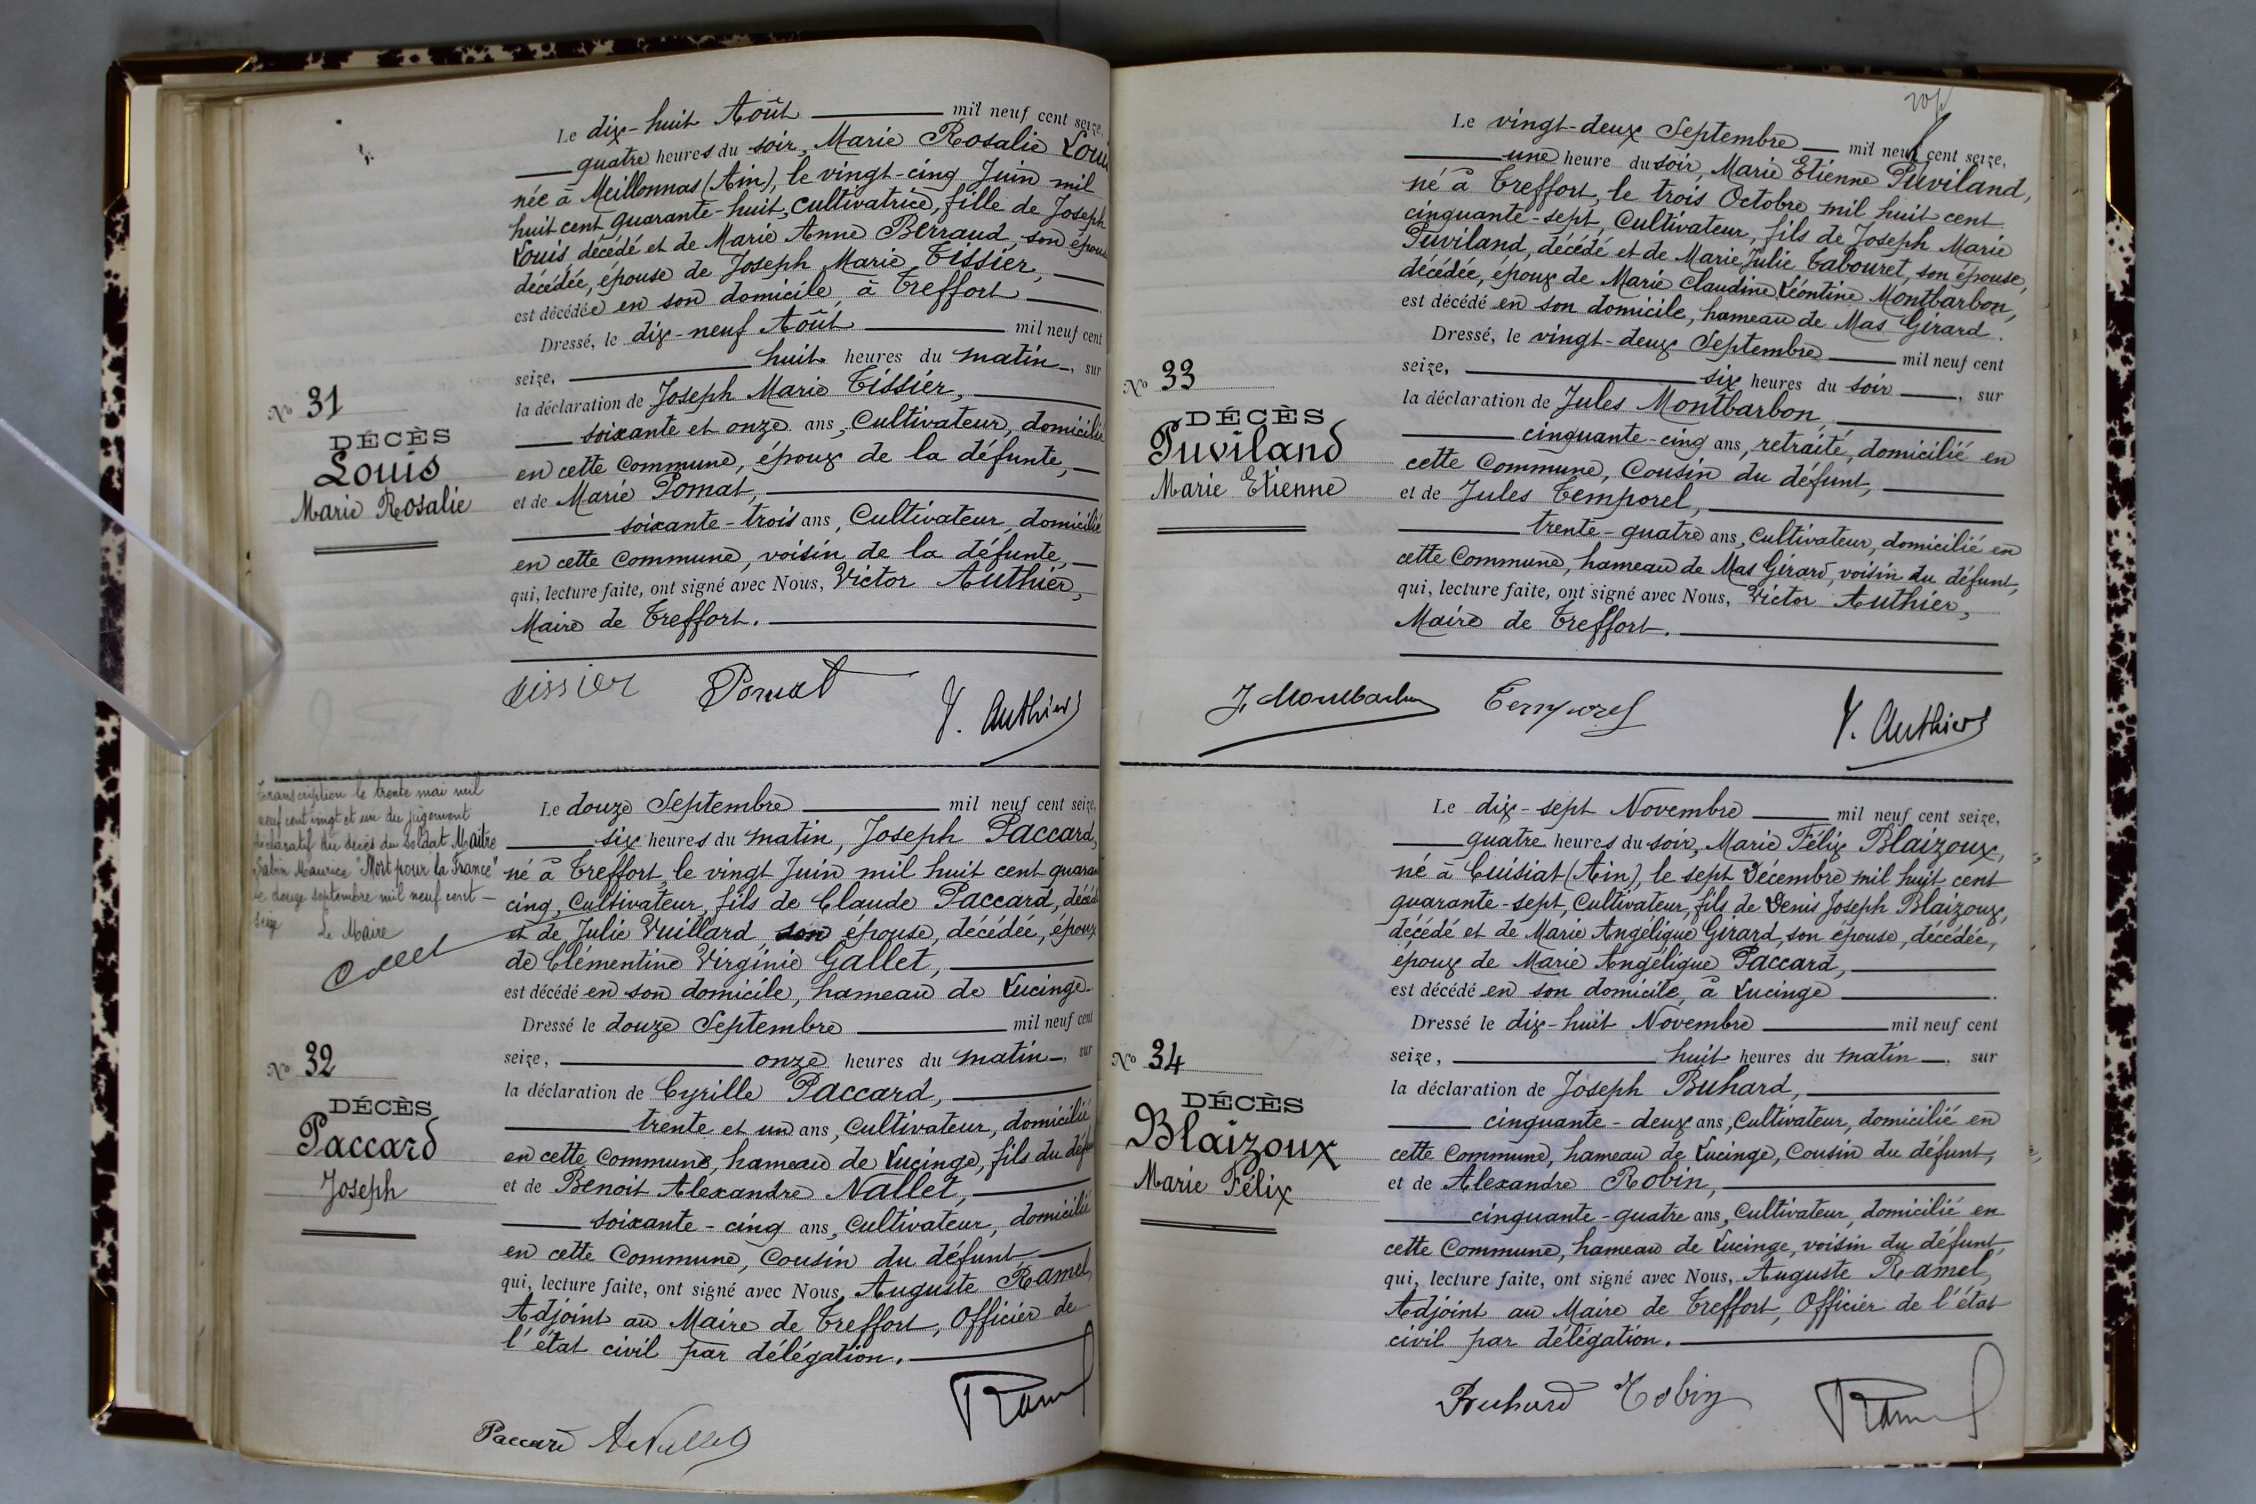 Le dix-huit Août mil neuf cent seize,
quatre heures du soir, Marie Rosalie Louis
née à Meillonnas (Ain), le vingt-cinq Juin mil
huit cent quarante-huit, Cultivatrice, fille de Joseph
Louis décédé et de Marie Anne Berraud, son épouse
décédée, épouse de Joseph Marie Tissier,
est décédée en son domicile, à Treffort
Dressé, le dix-neuf Août mil neuf cent
seize, huit heures du matin, sur
la déclaration de Joseph Marie Tissier,
soixante et onze ans, Cultivateur, domicilié
en cette Commune, époux de la défunte,
et de Marie Pomat,
soixante-trois ans, Cultivateur domicilié
en cette Commune, voisin de la défunte,
qui, lecture faite, ont signé avec Nous, Victor Authier,
Maire de Treffort.
No 31
DÉCÈS
Louis
Marie Rosalie
Tissier Pomat
V. Authier
Transcription le trente mai mil
neuf cent vingt et un du jugement
déclaratif du décès du soldat Maitre
Sabin Maurice "Mort pour la France"
le douze septembre mil neuf cent
seize Le Maire
Le douze Septembre mil neuf cent seize,
six heures du matin, Joseph Paccard,
né à Treffort, le vingt Juin mil huit cent quaran
cinq, Cultivateur, fils de Claude Paccard, décéd
et de Julie Vuillard, son épouse, décédée, époux
de Clémentine Virginie Gallet,
est décédé en son domicile, hameau de Lucinge
Dressé le douze Septembre mil neuf cent
seize, onze heures du matin, sur
la déclaration de Cyrille Paccard,
trente et un ans, Cultivateur, domicilié
en cette Commune, hameau de Lucinge, fils du défun
et de Benoit Alexandre Nallet,
soixante-cinq ans, Cultivateur, domicilié
en cette Commune, Cousin du défunt
qui, lecture faite, ont signé avec Nous, Auguste Ramel,
Adjoint au Maire de Treffort, Officier de
l'état civil par délégation.
No 32
DÉCÈS
Paccard
Joseph
Ramel
Paccard A Nallet
Le vingt-deux Septembre mil neuf cent seize,
une heure du soir, Marie Etienne Puviland,
né à Treffort, le trois Octobre mil huit cent
cinquante-sept, Cultivateur, fils de Joseph Marie
Puviland, décédé et de Marie Julie Tabouret, son épouse,
décédée, époux de Marie Claudine Léontine Montbarbon,
est décédé en son domicile, hameau de Mas Girard.
Dressé, le vingt-deux Septembre mil neuf cent
seize, six heures du soir, sur
la déclaration de Jules Montbarbon,
cinquante-cinq ans, retraité, domicilié en
cette Commune, Cousin du défunt,
et de Jules Temporel,
trente-quatre ans, Cultivateur, domicilié en
cette Commune, hameau de Mas Girard, voisin du défunt,
qui, lecture faite, ont signé avec Nous, Victor Authier,
Maire de Treffort.
No 33
DÉCÈS
Puviland
Marie Etienne
J. Montbarbon Temporel
V. Authier
Le dix-sept Novembre mil neuf cent seize,
quatre heures du soir, Marie Félix Blaizoux,
né à Cuisiat (Ain), le sept Décembre mil huit cent
quarante-sept, Cultivateur, fils de Denis Joseph Blaizoux,
décédé et de Marie Angélique Girard, son épouse, décédée,
époux de Marie Angélique Paccard,
est décédé en son domicile, à Lucinge
Dressé le dix-huit Novembre mil neuf cent
seize, huit heures du matin, sur
la déclaration de Joseph Buhard,
cinquante-deux ans, Cultivateur, domicilié en
cette Commune, hameau de Lucinge, Cousin du défunt,
et de Alexandre Robin,
cinquante-quatre ans, Cultivateur, domicilié en
cette Commune, hameau de Lucinge, voisin du défunt,
qui, lecture faite, ont signé avec Nous, Auguste Ramel,
Adjoint au Maire de Treffort, Officier de l'état
civil par délégation.
No 34
DÉCÈS
Blaizoux
Marie Félix
Buhard Robin
Ramel